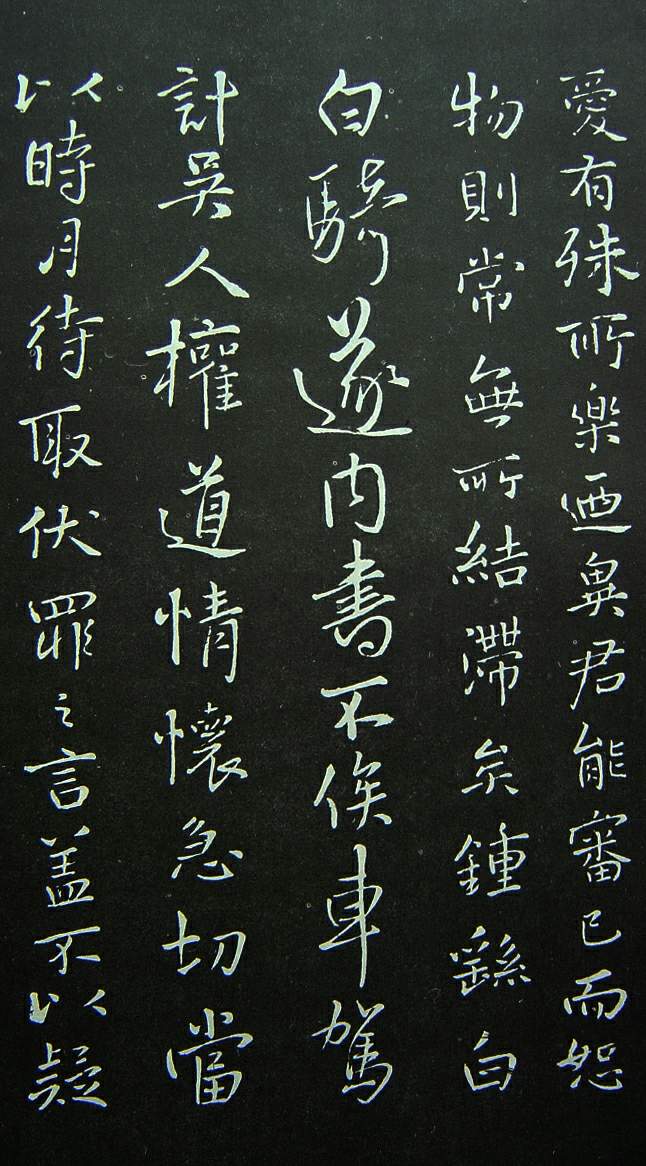 愛有殊所樂迺異君能審己而恕
物則常無所結滯矣鍾繇白
白騎遂內書不俟車駕
計吳人權道情懷急切當
以時月待取伏罪之言盖不以疑